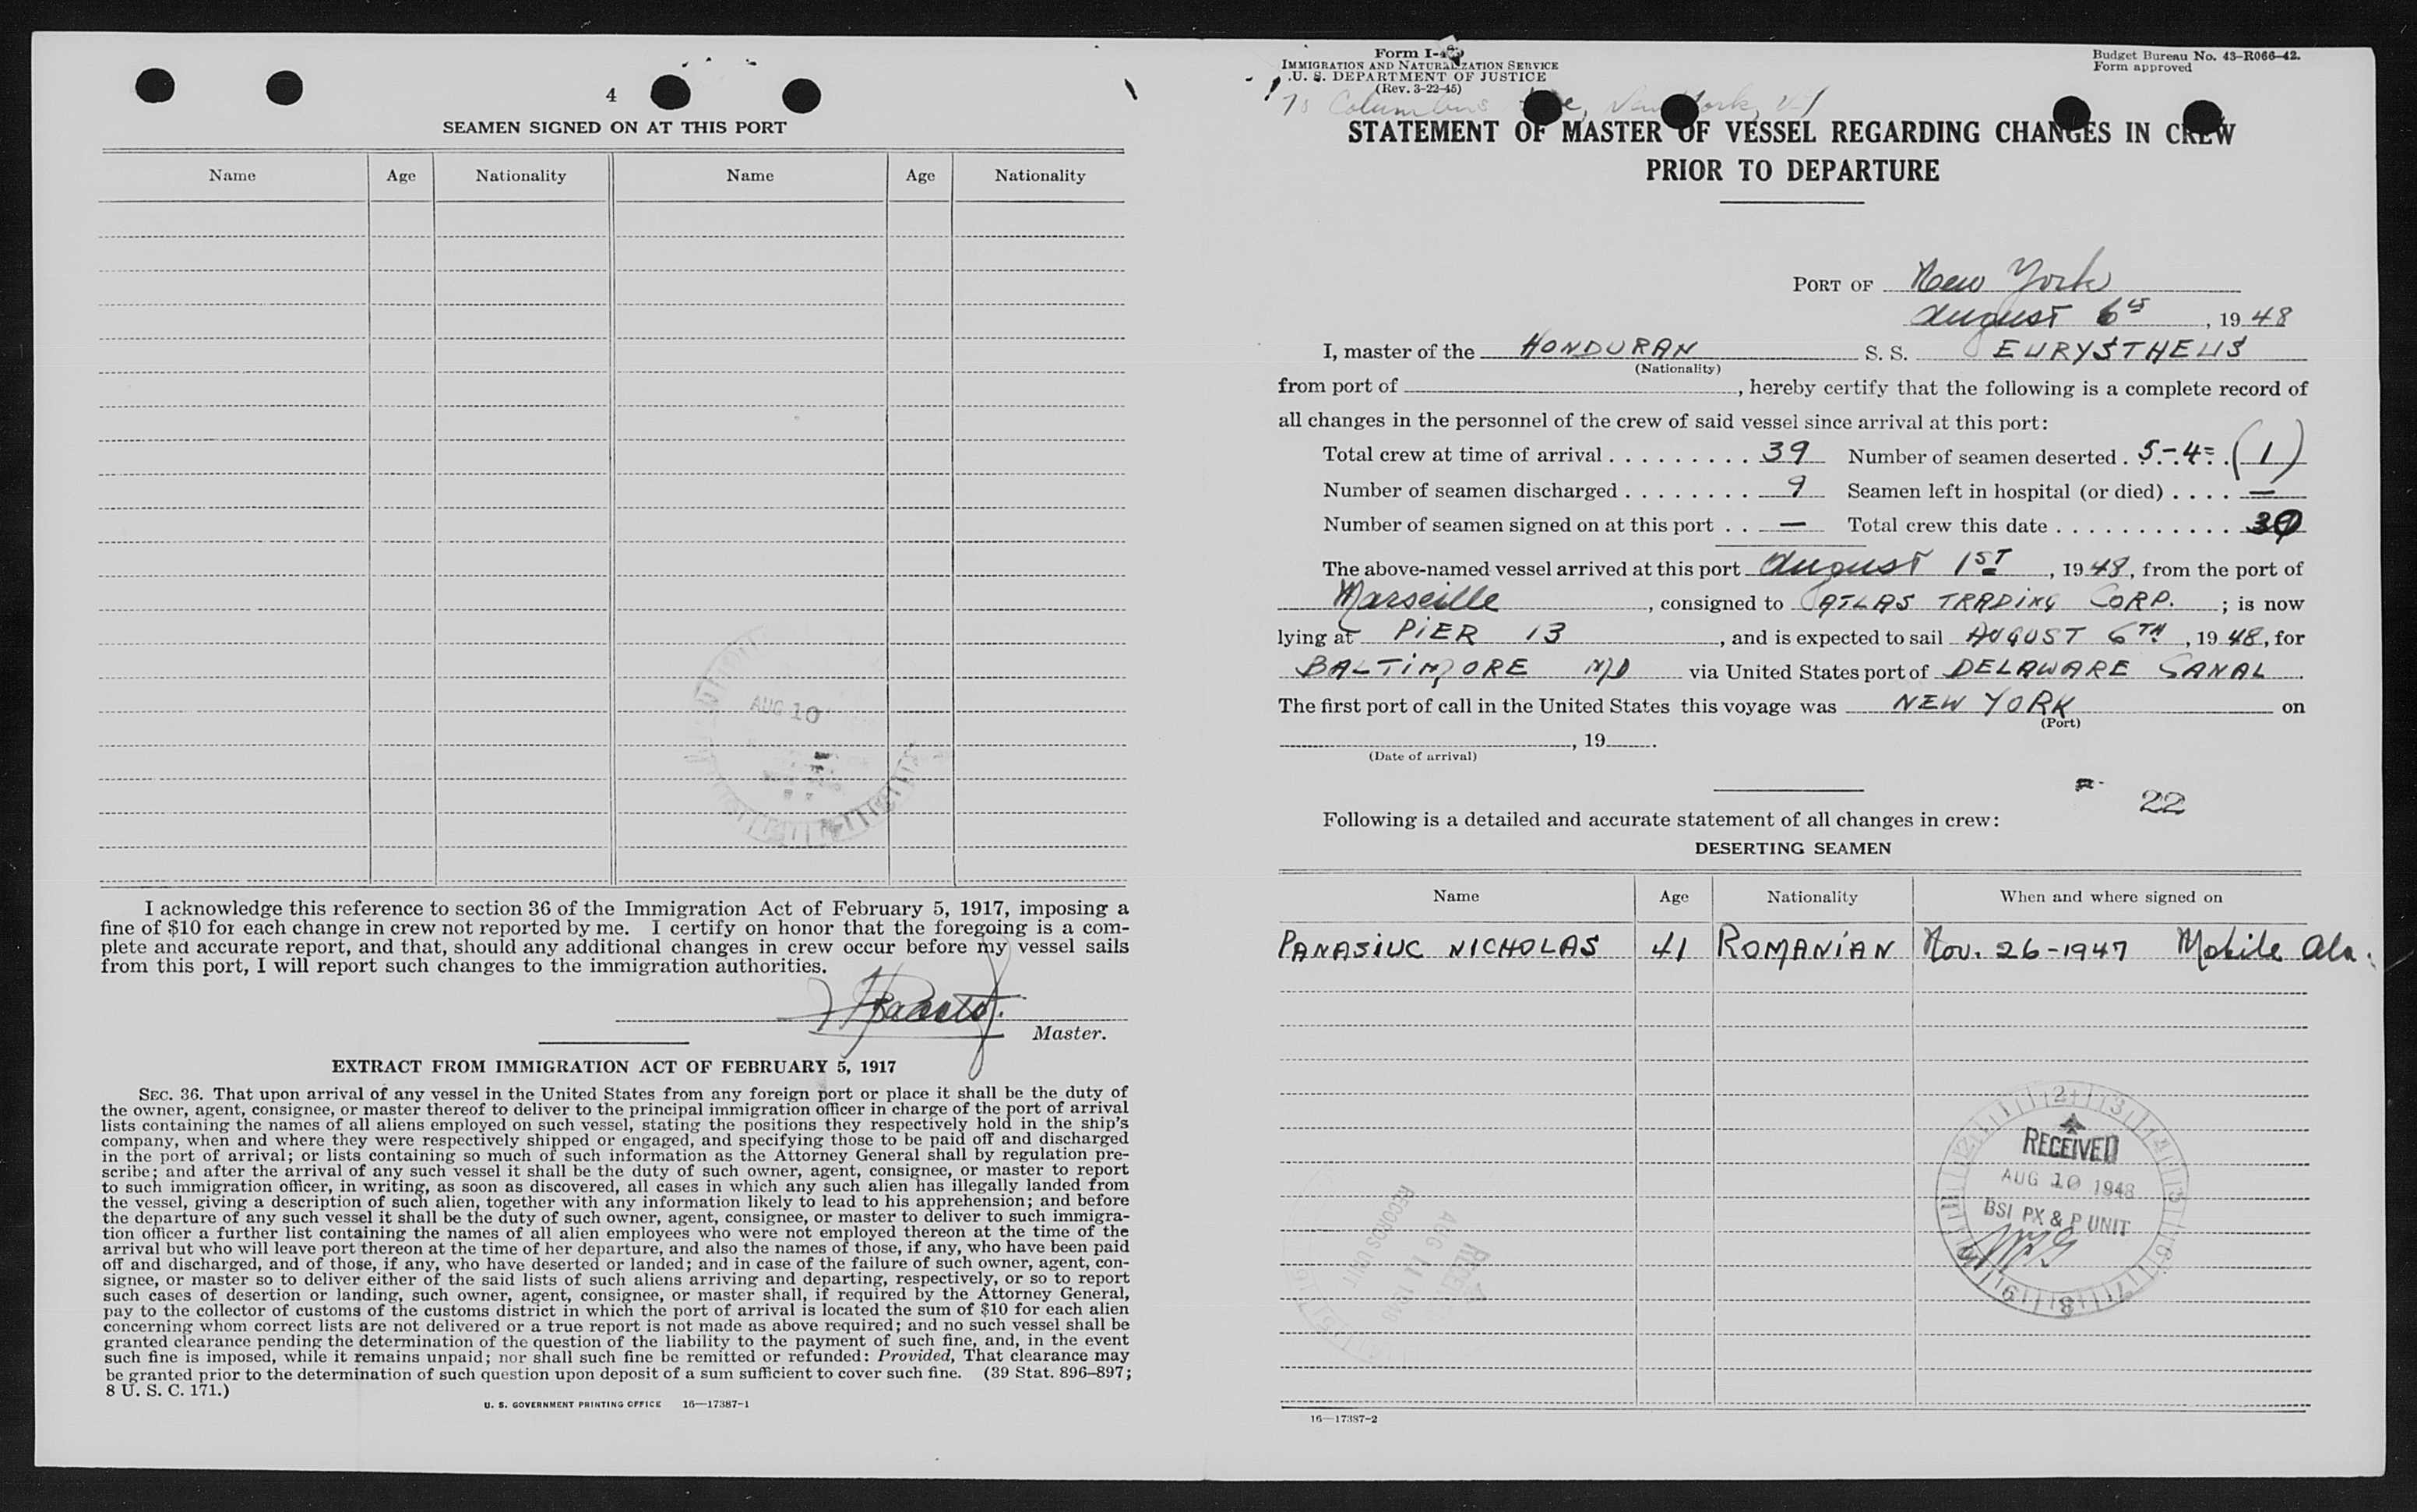 4
SEAMEN SIGNED ON AT THIS PORT
Name Age Nationality Name Age Nationality
AUG 10
I acknowledge this reference to section 36 of the Immigration Act of February 5, 1917, imposing a
fine of $10 for each change in crew not reported by me. I certify on honor that the foregoing is a com-
plete and accurate report, and that, should any additional changes in crew occur before my vessel sails
from this port, I will report such changes to the immigration authorities.
Master.
EXTRACT FROM IMMIGRATION ACT OF FEBRUARY 5, 1917
SEC. 36. That upon arrival of any vessel in the United States from any foreign port or place it shall be the duty of
the owner, agent, consignee, or master thereof to deliver to the principal immigration officer in charge of the port of arrival
lists containing the names of all aliens employed on such vessel, stating the positions they respectively hold in the ship's
company, when and where they were respectively shipped or engaged, and specifying those to be paid off and discharged
in the port of arrival; or lists containing so much of such information as the Attorney General shall by regulation pre-
scribe; and after the arrival of any such vessel it shall be the duty of such owner, agent, consignee, or master to report
to such immigration officer, in writing, as soon as discovered, all cases in which any such alien has illegally landed from
the vessel, giving a description of such alien, together with any information likely to lead to his apprehension; and before
the departure of any such vessel it shall be the duty of such owner, agent, consignee, or master to deliver to such immigra-
tion officer a further list containing the names of all alien employees who were not employed thereon at the time of the
arrival but who will leave port thereon at the time of her departure, and also the names of those, if any, who have been paid
off and discharged, and of those, if any, who have deserted or landed; and in case of the failure of such owner, agent, con-
signee, or master so to deliver either of the said lists of such aliens arriving and departing, respectively, or so to report
such cases of desertion or landing, such owner, agent, consignee, or master shall, if required by the Attorney General,
pay to the collector of customs of the customs district in which the port of arrival is located the sum of $10 for each alien
concerning whom correct lists are not delivered or a true report is not made as above required; and no such vessel shall be
granted clearance pending the determination of the question of the liability to the payment of such fine, and, in the event
such fine is imposed, while it remains unpaid; nor shall such fine be remitted or refunded: Provided, That clearance may
be granted prior to the determination of such question upon deposit of a sum sufficient to cover such fine. (39 Stat. 896–897;
8 U. S. C. 171.)
U. S. GOVERNMENT PRINTING OFFICE 16—17387-1
Form I-
IMMIGRATION AND NATURALIZATION SERVICE
U. S. DEPARTMENT OF JUSTICE
(Rev. 3-22-45)
Budget Bureau No. 43–R066–42.
Form approved
Columbus New York
STATEMENT OF MASTER OF VESSEL REGARDING CHANGES IN CREW
PRIOR TO DEPARTURE
PORT OF New York
August 6, 1948
I, master of the HONDURAN S. S. EURYSTHEUS
(Nationality)
from port of , hereby certify that the following is a complete record of
all changes in the personnel of the crew of said vessel since arrival at this port:
Total crew at time of arrival 39 Number of seamen deserted 5-4= (1)
Number of seamen discharged 9 Seamen left in hospital (or died) —
Number of seamen signed on at this port — Total crew this date
The above-named vessel arrived at this port August 1ST, 1948, from the port of
Marseille, consigned to ATLAS TRADING CORP.; is now
lying at PIER 13, and is expected to sail AUGUST 6TH, 1948, for
BALTIMORE MD via United States port of DELAWARE CANAL.
The first port of call in the United States this voyage was NEW YORK on
(Port)
, 19 .
(Date of arrival)
22
Following is a detailed and accurate statement of all changes in crew:
DESERTING SEAMEN
Name Age Nationality When and where signed on
PANASIUC NICHOLAS 41 ROMANIAN Nov. 26-1947 Mobile Ala.
RECEIVED
AUG 10 1948
BSI PX & P UNIT
RECORDS UNIT
AUG 11 1948
16—17387-2